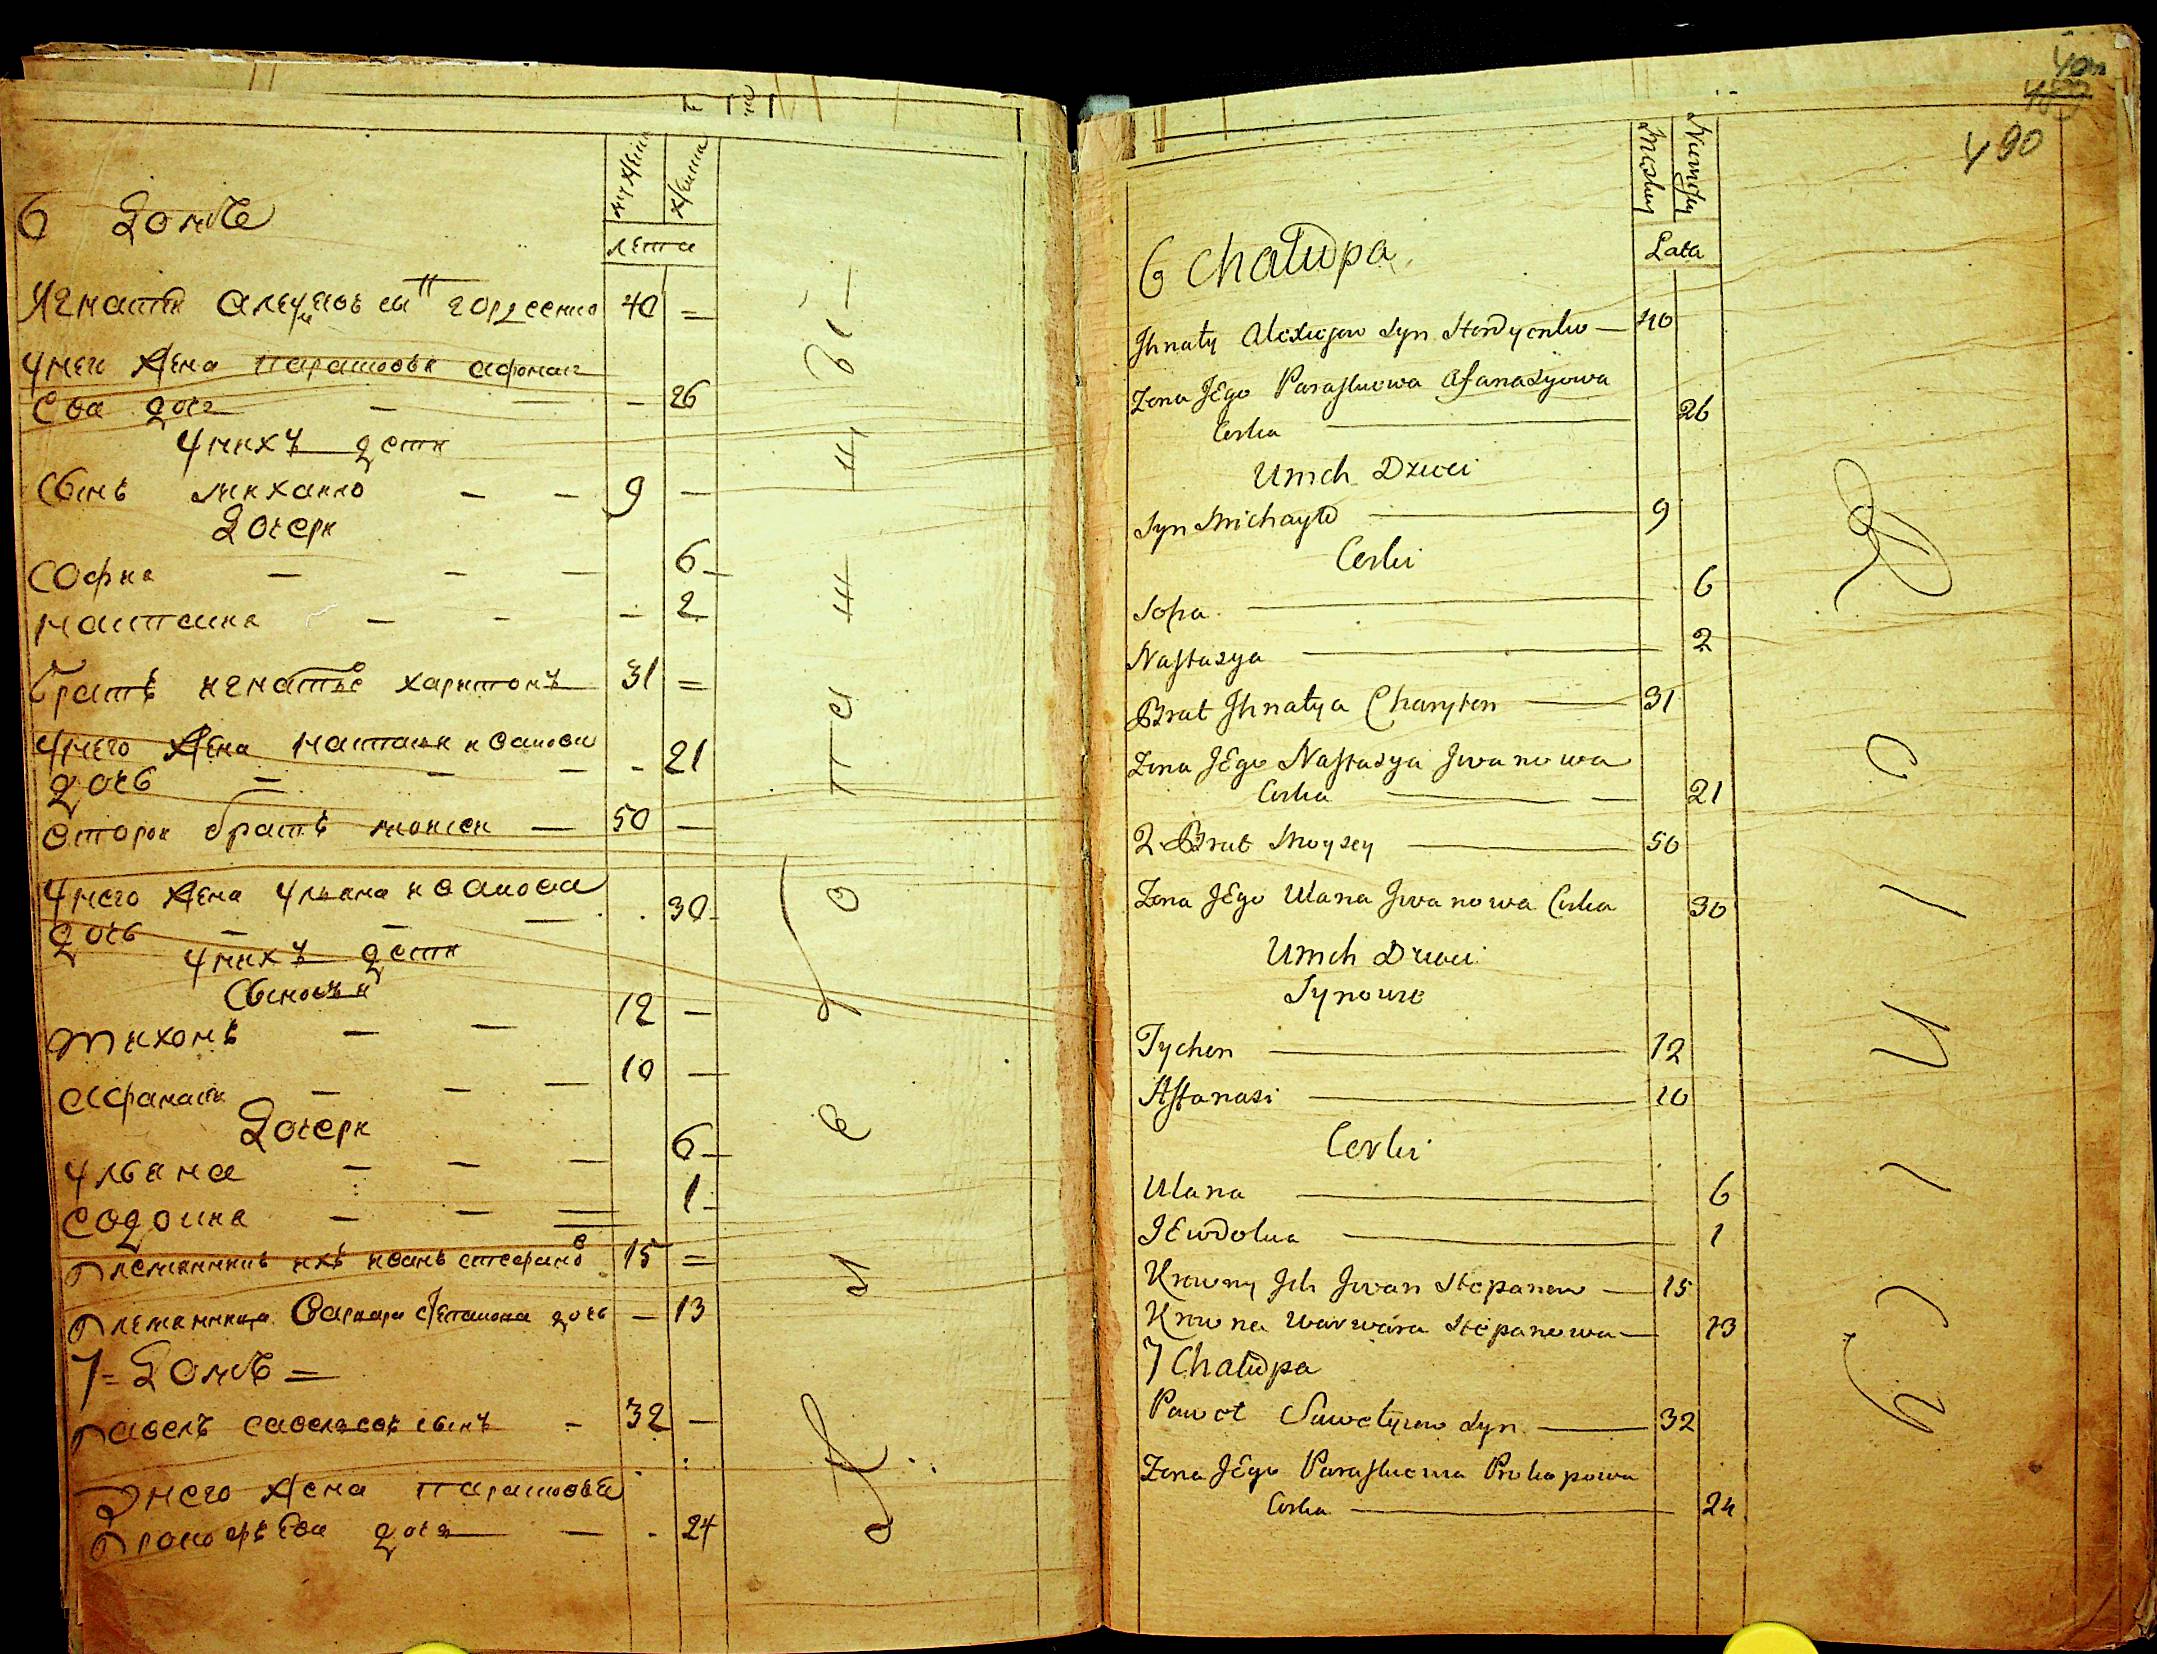 6 Домъ
мужеска
женска
лета
Игнатій Алеѯѣовъ сы͏нъ Гордеенко 40
Унего жена Парасковѣя Афонас
ева дочь — — — 26
Унихъ дети
Сынъ Михайло — — 9 —
Дочери
София — — — 6
Настасия — — — 2
братъ игнатъе харитонъ 31
Унего жена настасия иванова
дочь — — — 21
второй братъ моисей — 50 —
Унего жена Ульяна иванова
дочь — — — 30
Унихъ дети
Сыновья
Тихонъ — — 12 —
Афанасий — — — 10 —
Дочери
Ульяна — — — 6
Евдокия — — 1
Племянникъ ихъ иванъ степано 15
Племянница Варвара Степанова дочь — 13
7 = Домъ =
Павелъ савельевъ сынъ — 32 —
Унего жена парасковья
Прокофьева дочь — — 24
490
Męskey
Niewiesckiey
Lata
6 Chałupa
Ihnaty Alexiejow Syn Hordyenko — 40
Zona JEgo Paraskiewa Afanasyowa
Corka — 26
Unich Dzieci
Syn Michayło — 9
Corki
Sofia — 6
Nastasya — 2
Brat Ihnatya Charyton — 31
Zona JEgo Nastasya Jwanowa
Corka — 21
2 Brat Moysey — 50
Zona JEgo Ulana Jwanowa Corka 30
Unich Dzieci
Synowie
Tychon — 12
Aftanasi — 10
Corki
Ulana — 6
JEwdokia — 1
Krewny Jch Jwan Stepanow — 15
Krewna Warwara Stepanowa — 13
7 Chałupa
Paweł Sawełyiew Syn — 32
Zona JEgo Paraskiewia Prokopowa
Corka — 24